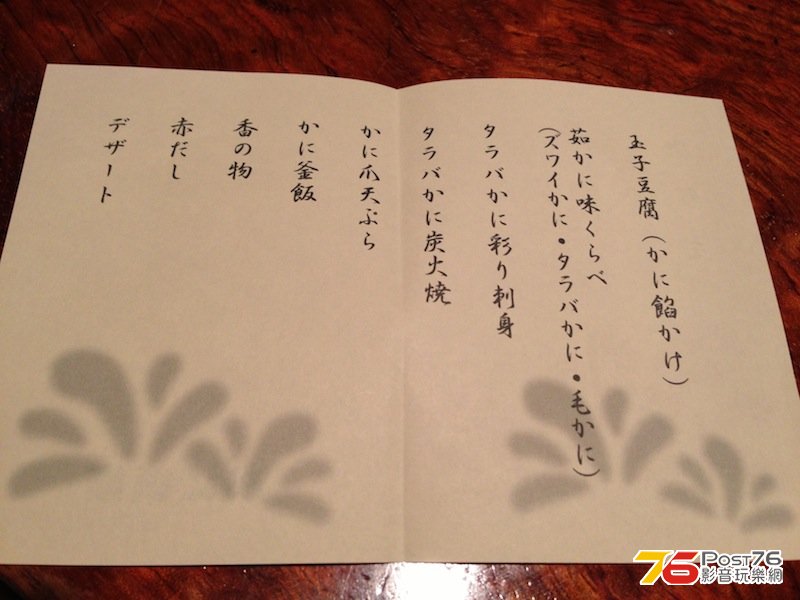 玉子豆腐(かに餡かけ)
茹かに味くらべ
(ズワイかに・タラバかに・毛かに)
タラバかに彩り刺身
タラバかに炭火焼
かに爪天ぷら
かに釜飯
香の物
赤だし
デザート
76 Post76
影音玩樂網